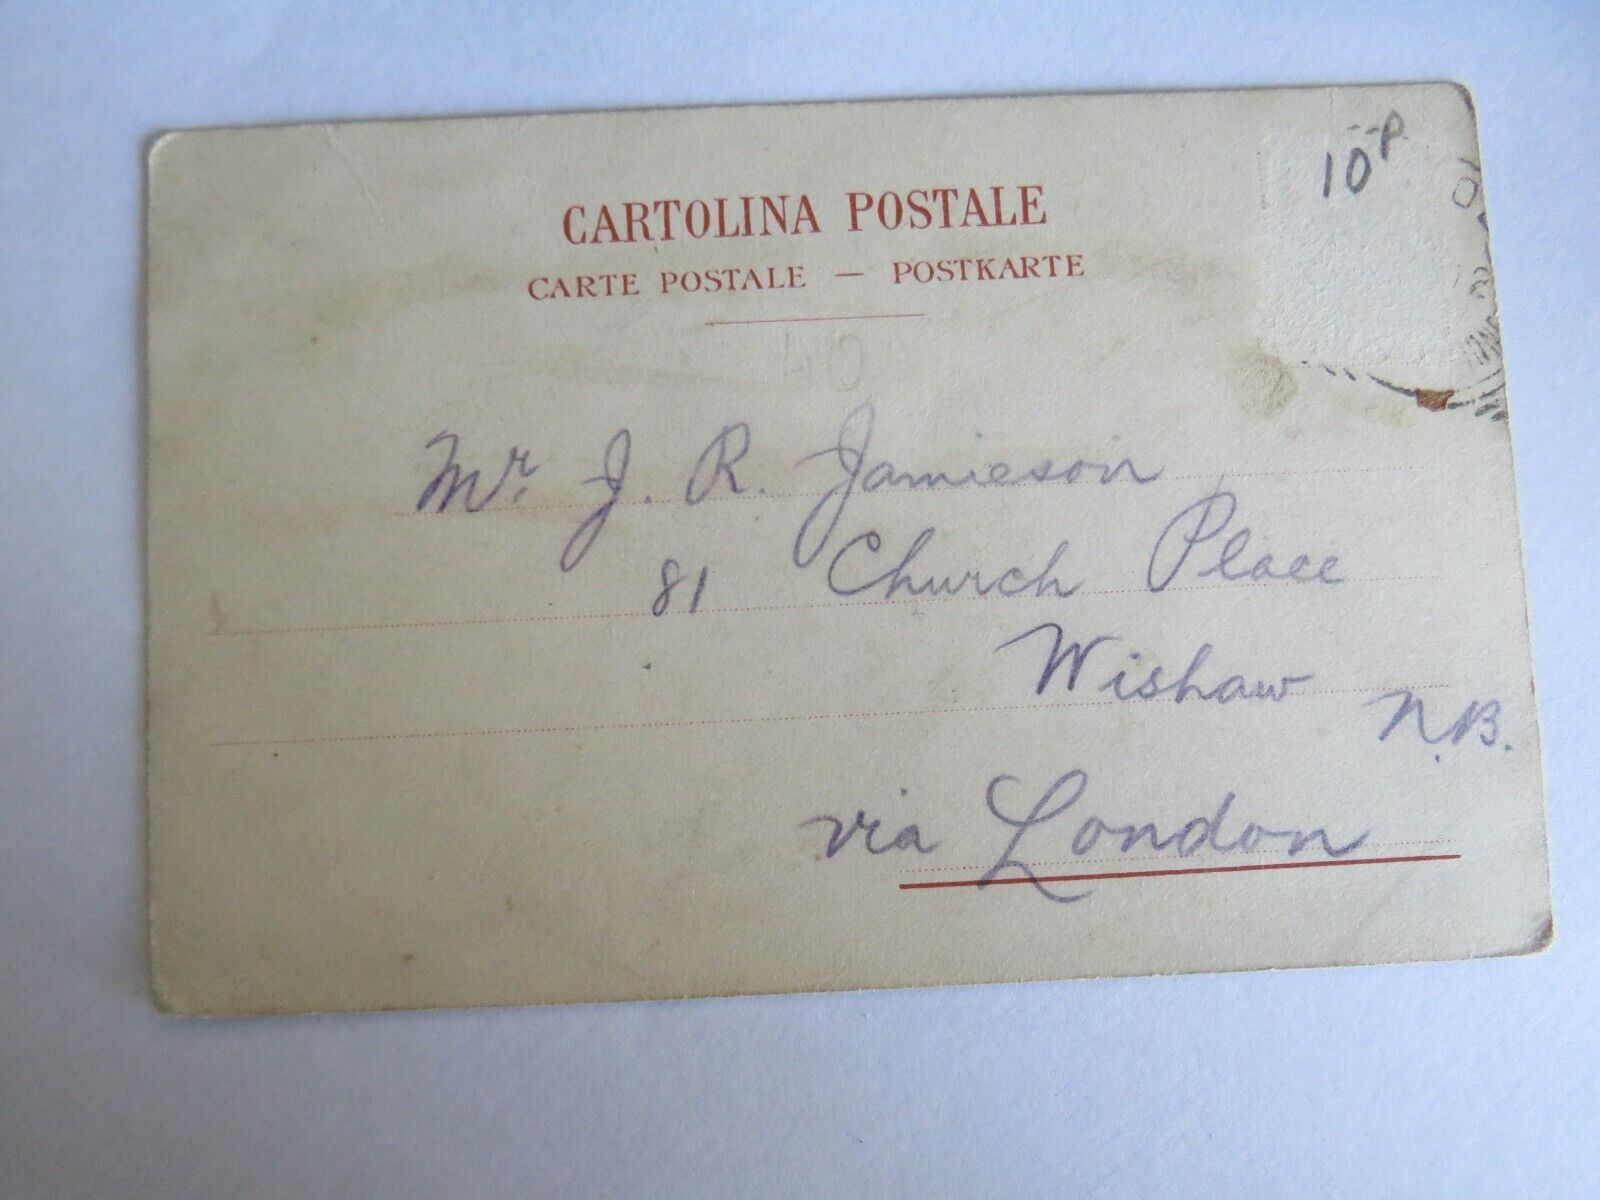 10P
CARTOLINA POSTALE
CARTE POSTALE — POSTKARTE
Mr. J. R. Jamieson
81 Church Place
Wishaw
N.B.
via London